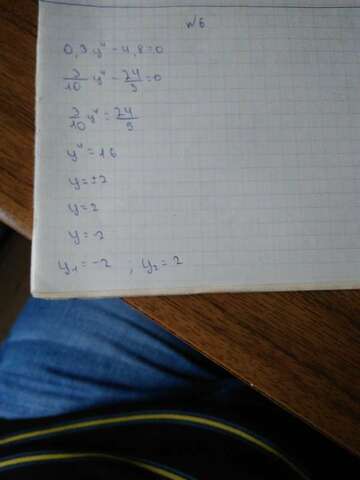 №6
0,3y⁴ - 4,8=0
3/10 y⁴ - 24/5=0
3/10 y⁴ = 24/5
y⁴ = 16
y=±2
y=2
y=-2
y₁=-2 ; y₂=2